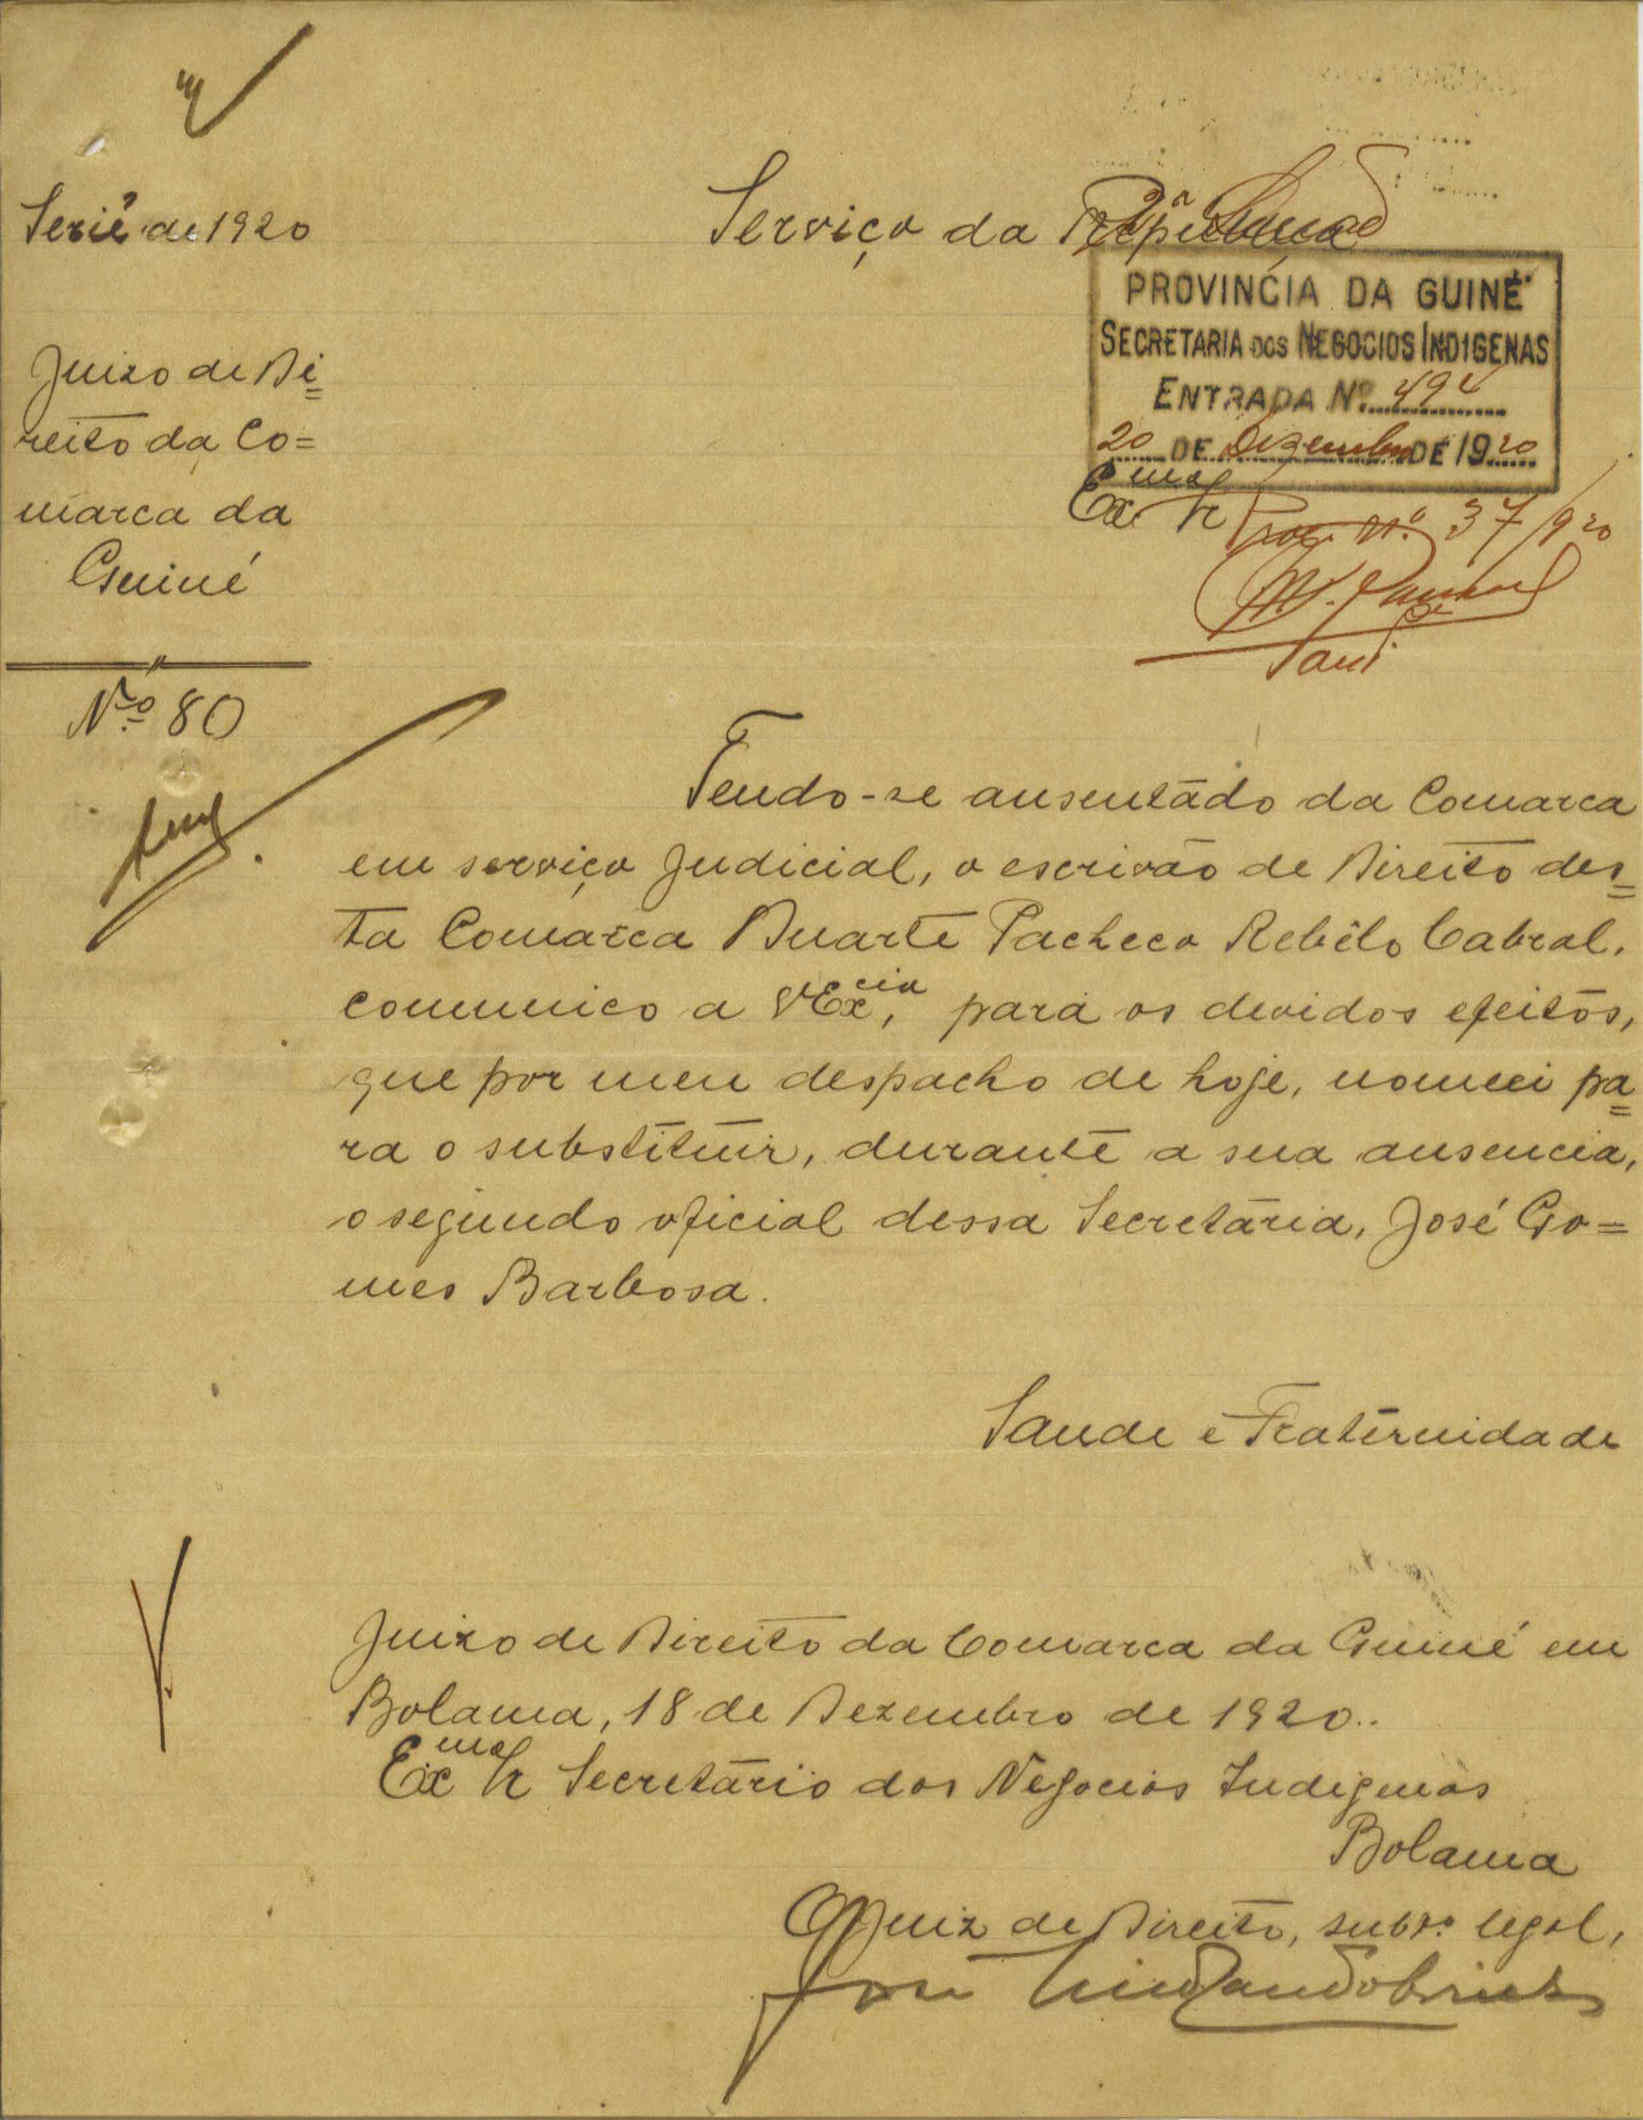 Serie de 1920
Serviço da Republica
PROVINCIA DA GUINÉ
SECRETARIA DOS NEGOCIOS INDIGENAS
ENTRADA Nº 494
20 DE Dezembro DE 1920
Juizo de Di=
reito da Co=
marca da
Guiné
Exmo Sr
Proc. Nº 37/920
Nº 80
Tendo-se ausentado da Comarca
em serviço Judicial, o escrivão de Direito des=
ta Comarca Duarte Pacheco Rebêlo Cabral,
comunico a VExcia, para os devidos efeitos,
que por meu despacho de hoje, nomeei pa=
ra o substituir, durante a sua ausencia,
o segundo oficial dessa Secretaria, José Go=
mes Barbosa.
Saude e Fraternidade
Juizo de Direito da Comarca da Guiné em
Bolama, 18 de Dezembro de 1920.
Exmo Sr Secretario dos Negocios Indigenas
Bolama
O Juiz de Direito, substo legal,
José